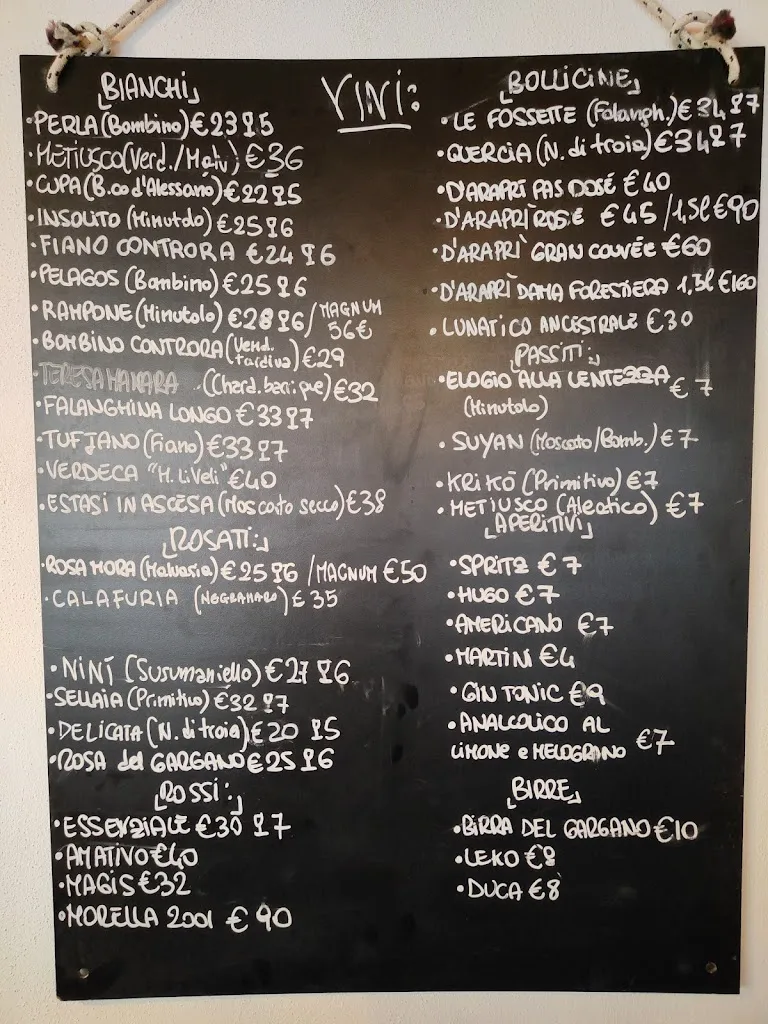 VINI:
BIANCHI
•PERLA (Bombino) €23 🍷5
•METIUSCO (Verd./Malv) €36
•CUPA (B.co d'Alessano) €22 🍷5
•INSOLITO (Minutolo) €25 🍷6
•FIANO CONTRORA €24 🍷6
•PELAGOS (Bombino) €25 🍷6
•RAMPONE (Minutolo) €28 🍷6/MAGNUM 56€
•BOMBINO CONTRORA (Vend. tardiva) €29
•TERESA MANARA (Chard. barrique) €32
•FALANGHINA LONGO €33 🍷7
•TUFJANO (Fiano) €33 🍷7
•VERDECA "M. Li Veli" €40
•ESTASI IN ASCESA (Moscato secco) €38
ROSATI:
•ROSA MORA (Malvasia) €25 🍷6 /MAGNUM €50
•CALAFURIA (NEGRAMARO) € 35
•NINÌ (Susumaniello) €27 🍷6
•SELLAIA (Primitivo) €32 🍷7
•DELICATA (N. di troia) €20 🍷5
•ROSA del GARGANO €25 🍷6
ROSSI:
•ESSENZIALE €30 🍷7
•AMATIVO €40
•MAGIS €32
•MORELLA 2001 €90
BOLLICINE
•LE FOSSETTE (Falangh.) €34 🍷7
•QUERCIA (N. di troia) €34 🍷7
•D'ARAPRÌ PAS DOSÉ €40
•D'ARAPRÌ ROSÉ €45 /1,5l €90
•D'ARAPRÌ GRAN COUVÉE €60
•D'ARAPRÌ DAMA FORESTIERA 1,5l €160
•LUNATICO ANCESTRALE €30
PASSITI:
•ELOGIO ALLA LENTEZZA € 7
(Minutolo)
•SUYAN (Moscato/Bomb.) €7
•KRIKÓ (Primitivo) €7
•METIUSCO (Aleatico) €7
APERITIVI
•SPRITZ €7
•HUGO €7
•AMERICANO €7
•MARTINI €4
•GIN TONIC €9
•ANALCOLICO AL
LIMONE e MELOGRANO €7
BIRRE
•BIRRA DEL GARGANO €10
•LEKO €8
•DUCA €8